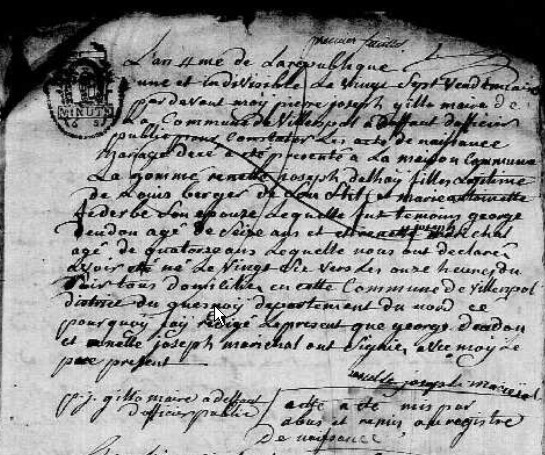 premier feuillet
L'an 4me de La republique
une et indivisible Le vingt Sept Vendemiaire
pardevant moy pierre joseph gillo maire de
La Commune de Villerspol a deffaut d'officier
public pour Constater Les acte de naissance
mariage decé a été presenté a La maison Commune
La nommé josaph delhaÿ fille Legitime
de Louis berger de et marie antoinette
federbe Son epouze Lequelle fut temoins george
doudon agé de Seize ans et marichal
agé de quatorze ans Lequelle nous ont declaré
avoir né Le Vingt Sie vers Les onze heures du
Soir tous domiciliés en cette Commune de villerspol
district du quesnoÿ departement du nord ce
pourquoy jaÿ redigé Le present que george doudon
et joseph marichal ont Signié avec moÿ Le
pere present
joseph marichal
p. j. gillo maire a deffaut
d'officier public
acte a été mis par
abus et remis au registre
de naissance
MINUTE